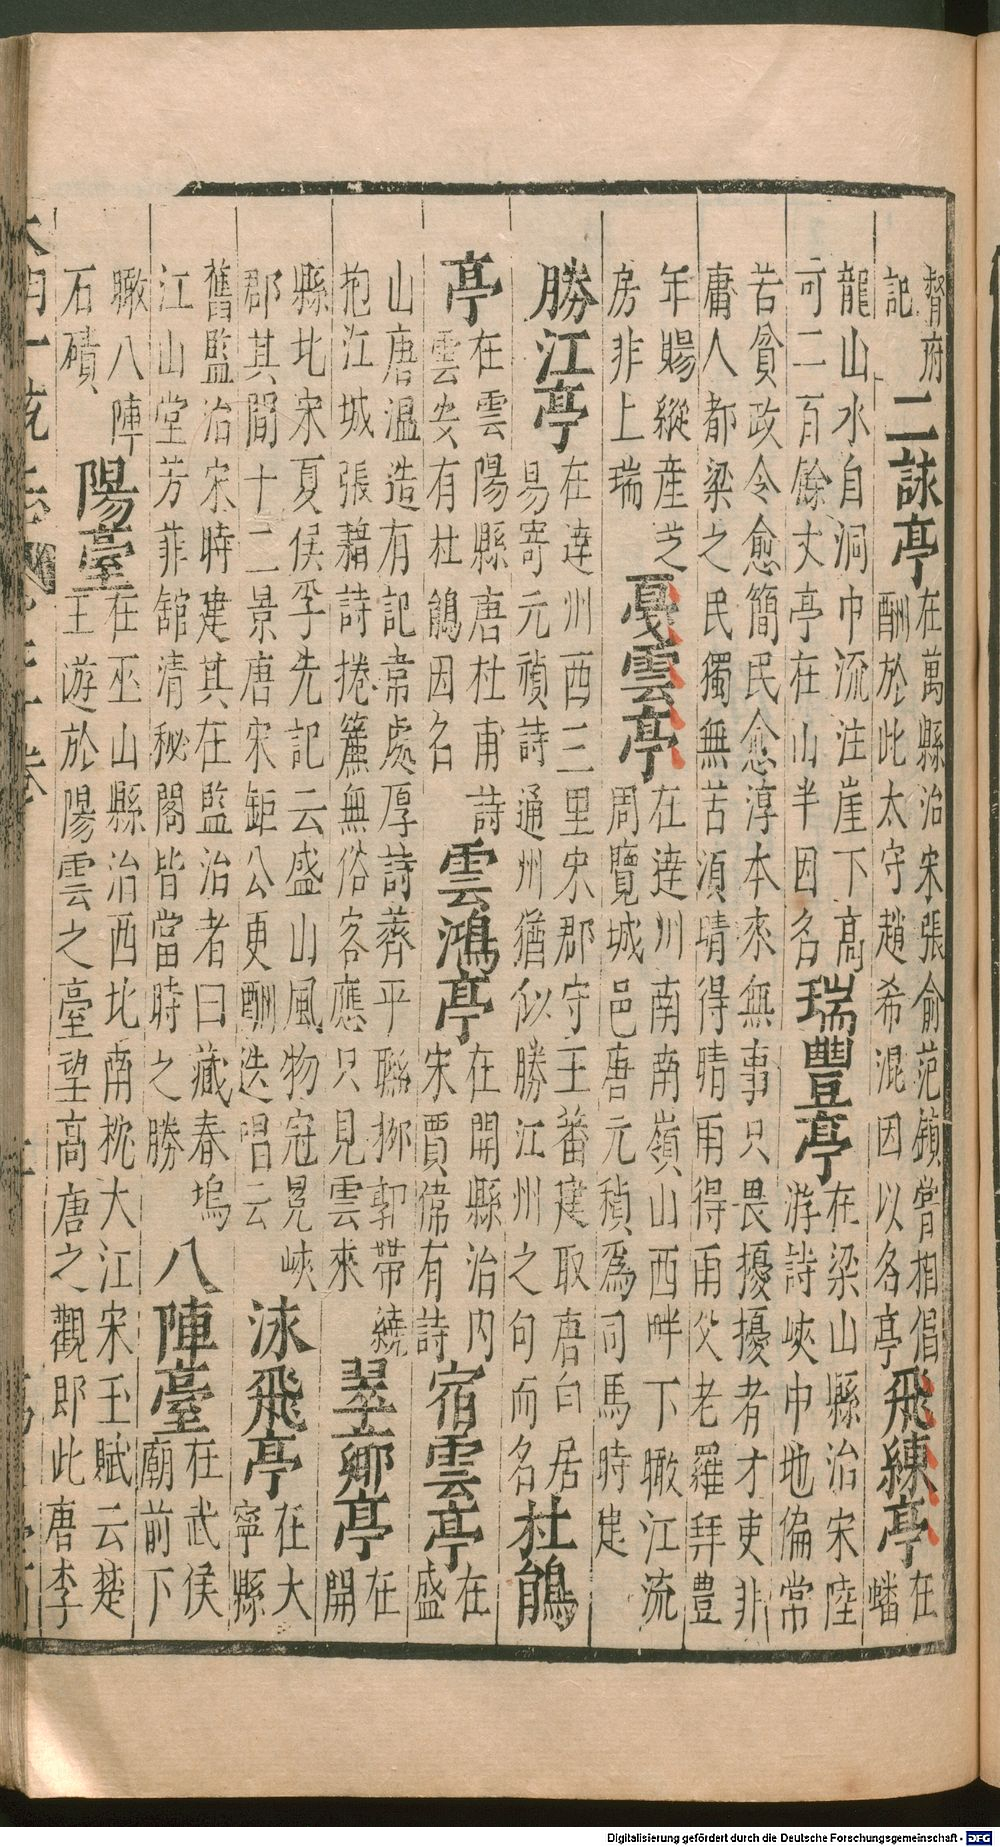 督府
記
二詠亭
在萬縣治宋張俞范鎮嘗相倡
酬於此太守趙希混因以名亭
飛練亭
在
蟠
龍山水自洞中流注崖下高
可二百餘丈亭在山半因名
瑞豐亭
在梁山縣治宋陸
游詩峽中地偏常
苦貧政令愈簡民愈淳本來無事只畏擾擾者才吏非
庸人都梁之民獨無苦須晴得晴雨得雨父老羅拜豐
年賜縱産芝
房非上瑞
戞雲亭
在達州南南嶺山西畔下瞰江流
周覽城邑唐元稹爲司馬時建
勝江亭
在達州西三里宋郡守王蕃建取唐白居
易寄元稹詩通州猶似勝江州之句而名
杜鵑
亭
在雲陽縣唐杜甫詩
雲安有杜鵑因名
雲鴻亭
在開縣治内
宋賈偉有詩
宿雲亭
在
盛
山唐溫造有記韋處厚詩薺平聯栁郭帶繞
抱江城張藉詩捲簾無俗客應只見雲來
翠卿亭
在
開
縣北宋夏侯孚先記云盛山風物冠冕峽
郡其間十二景唐宋鉅公更酬迭唱云
泳飛亭
在大
寧縣
舊監治宋時建其在監治者曰藏春塢
江山堂芳菲舘清秘閣皆當時之勝
八陣臺
在武侯
廟前下
瞰八陣
石磧
陽臺
在巫山縣治西北南枕大江宋玉賦云楚
王遊於陽雲之臺望高唐之觀即此唐李
Digitalisierung gefördert durch die Deutsche Forschungsgemeinschaft - DFG